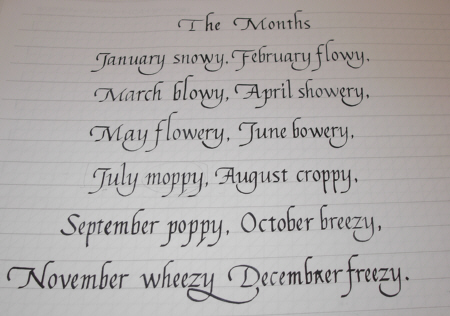 The Months
January snowy. February flowy.
March blowy, April showery,
May flowery, June bowery,
July moppy, August croppy,
September poppy, October breezy,
November wheezy December freezy.